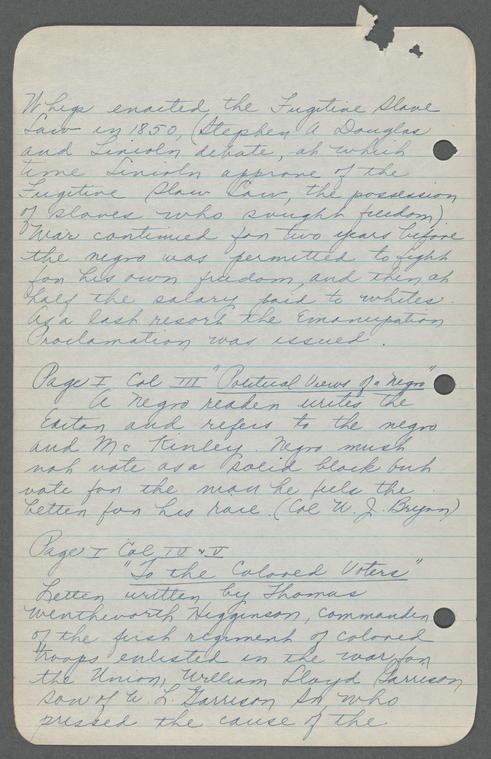 Whigs enacted the Fugitive Slave
Law in 1850, (Stephen A Douglas
and Lincoln debate, at which
time Lincoln approve of the
Fugitive Slave Law, the possession
of slaves who sought freedom).
War continued for two years before
the negro was permitted to fight
for his own freedom, and then at
half the salary paid to whites.
As a last resort the Emancipation
Proclamation was issued.
Page I Col III "Political Views of a Negro"
A Negro reader writes the
Editor and refers to the negro
and McKinley. Negro must
not vote as a solid block but
vote for the man he feels the
better for his race. (Col W. J. Bryan)
Page I Col IV & V
"To the Colored Voters"
Letter written by Thomas
Wentheworth Higginson, commander
of the first regiment of colored
troops enlisted in the war for
the Union, William Lloyd Garrison
son of W. L. Garrison Sr, who
pressed the cause of the